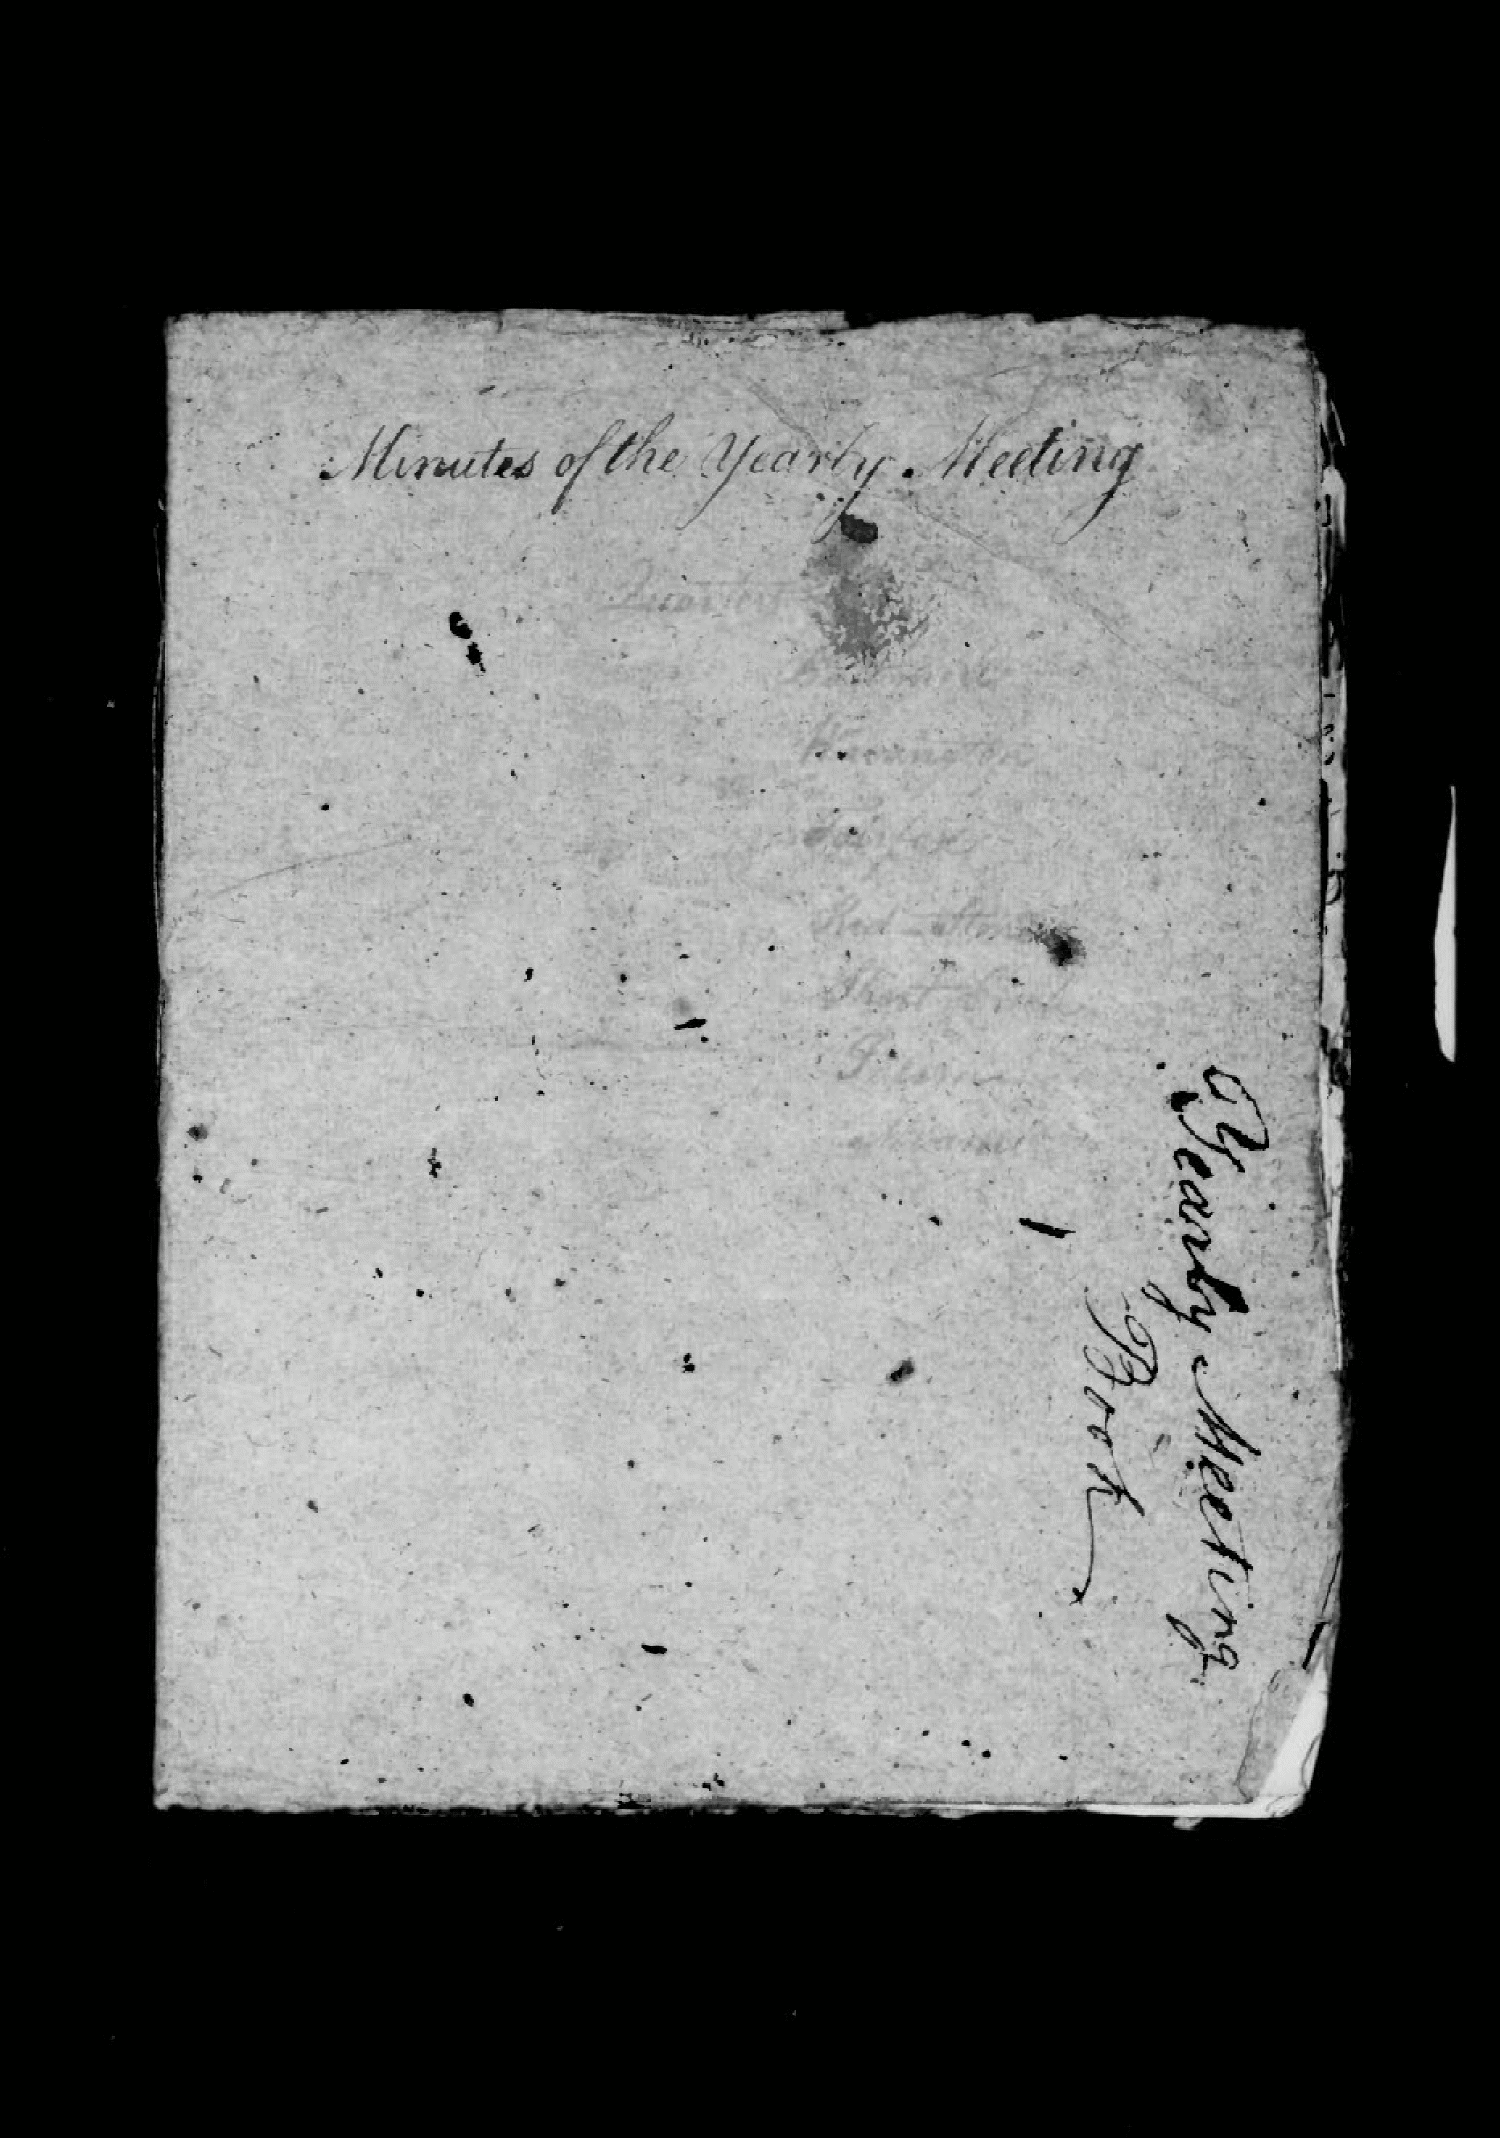 Minutes of the Yearly Meeting
Baltimore
Warrington
Fairfax
Red-Stone
Short Creek
Salem
Miami
Yearly Meeting
Book